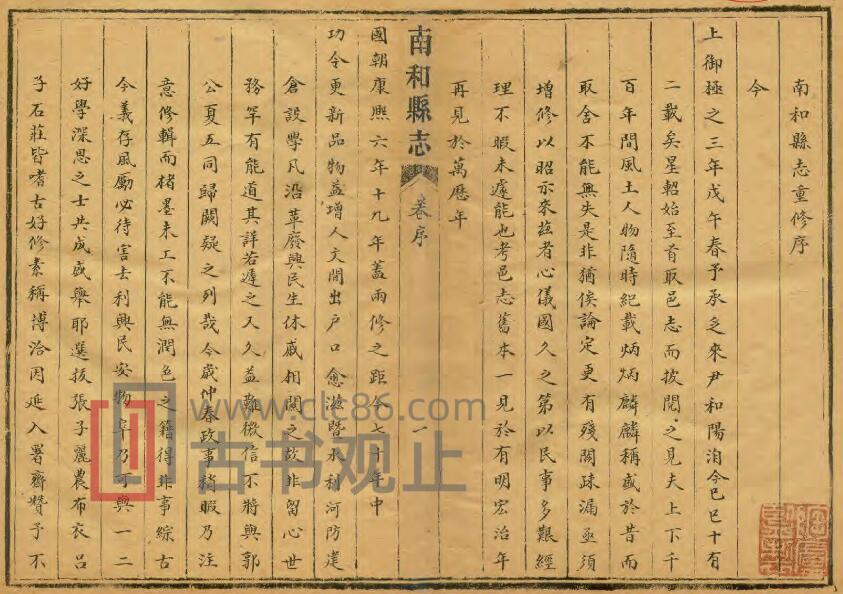 南和縣志重修序
今
上御極之三年戊午春予承乏來尹和陽洎今己巳十有
二載矣星軺始至首取邑志而披閱之見夫上下千
百年間風土人物隨時紀載炳炳麟麟稱盛於昔而
取舍不能無失是非猶俟論定更有殘闕疎漏亟須
增修以昭示來茲者心儀國久之第以民事多艱經
理不暇未遽能也考邑志舊本一見於有明宏治年
再見於萬歷年
南和縣志 卷序 一
國朝康熙六年十九年蓋兩修之距今七十年中
功令更新品物益增人文間出戶口愈滋暨水利河防建
倉設學凡沿革廢興民生休戚相關之故非留心世
務罕有能道其詳若遲之又久益難徵信不將與郭
公夏五同歸闕疑之列哉今歲仲春政事稍暇乃注
意修輯而楮墨未工不能無潤色之籍得非事綜古
今義存風勵必待害去利興民安物阜乃可與一二
好學深思之士共成盛舉耶選拔張子麗農布衣呂
子石莊皆嗜古好修素稱博洽因延入署齋贊予不
www.clc86.com
古书观止